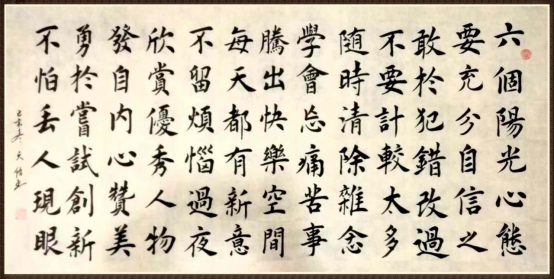 六個陽光心態
要充分自信之
敢於犯錯改過
不要計較太多
隨時清除雜念
學會忘痛苦事
騰出快樂空間
每天都有新意
不留煩惱過夜
欣賞優秀人物
發自內心贊美
勇於嘗試創新
不怕丢人現眼